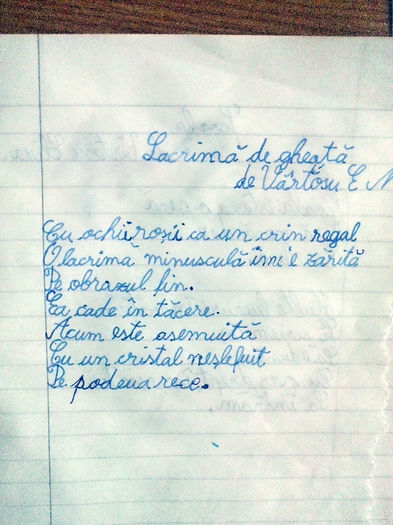 Lacrimă de gheață
de Vârtosu E N
Cu ochii roșii ca un crin regal
O lacrimă minusculă îmi e zărită
Pe obrazul fin.
Ea cade în tăcere.
Acum este asemuită
Cu un cristal neșlefuit
Pe podeua rece.